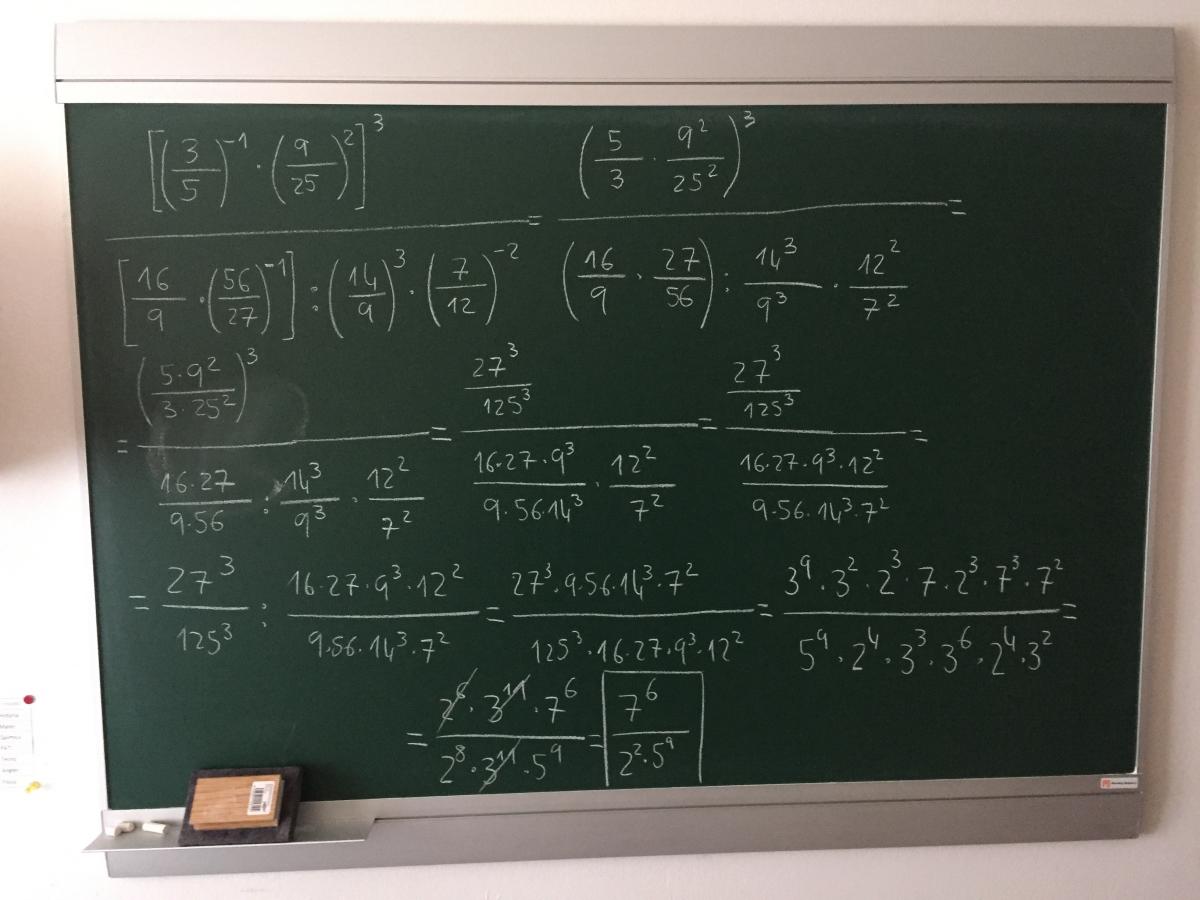 [(3/5)^-1 · (9/25)^2]^3 / [16/9 · (56/27)^-1] : (14/9)^3 · (7/12)^-2 = (5/3 · 9^2/25^2)^3 / (16/9 · 27/56) : 14^3/9^3 · 12^2/7^2 =
= (5·9^2/3·25^2)^3 / 16·27/9·56 : 14^3/9^3 · 12^2/7^2 = 27^3/125^3 / 16·27·9^3/9·56·14^3 · 12^2/7^2 = 27^3/125^3 / 16·27·9^3·12^2/9·56·14^3·7^2 =
= 27^3/125^3 : 16·27·9^3·12^2/9·56·14^3·7^2 = 27^3·9·56·14^3·7^2/125^3·16·27·9^3·12^2 = 3^9·3^2·2^3·7·2^3·7^3·7^2/5^9·2^4·3^3·3^6·2^4·3^2 =
= 2^6·3^11·7^6/2^8·3^11·5^9 = 7^6/2^2·5^9